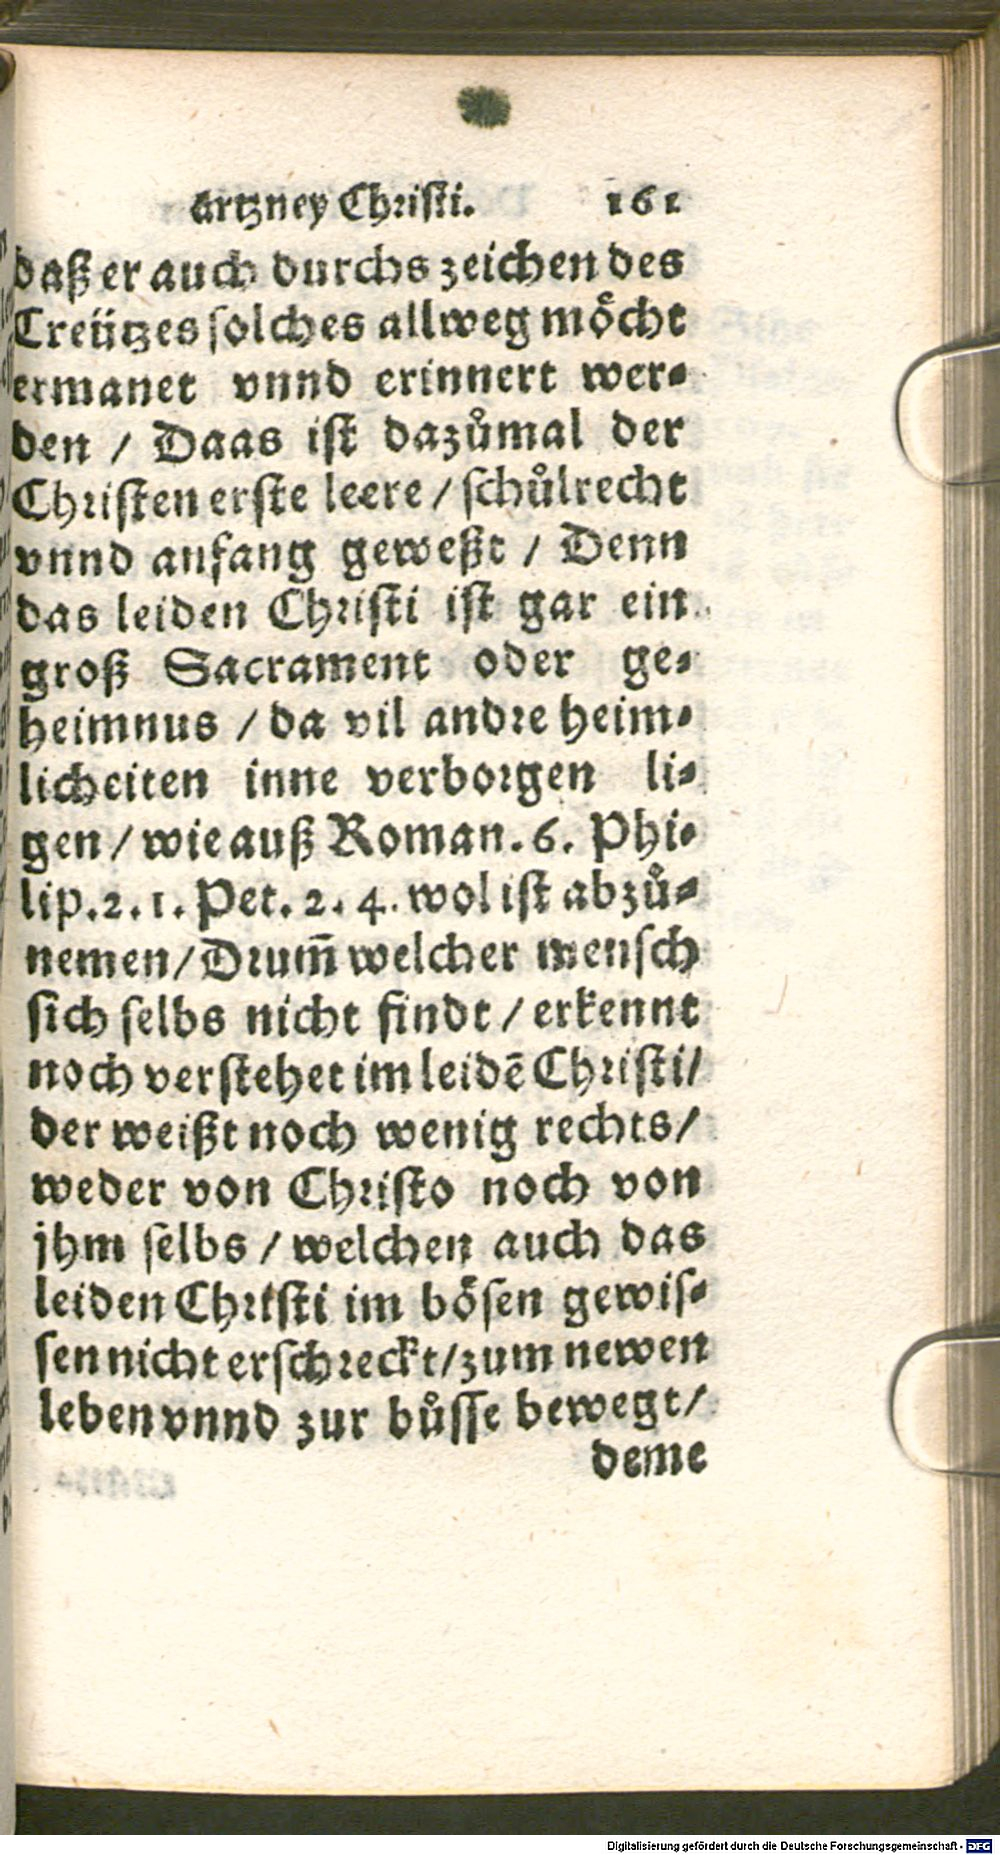 artzney Christi. 161
daß er auch durchs zeichen des
Creützes solches allweg moͤcht
ermanet vnnd erinnert wer⸗
den / Daas ist dazůmal der
Christen erste leere / schůlrecht
vnnd anfang geweßt / Denn
das leiden Christi ist gar ein
groß Sacrament oder ge⸗
heimnus / da vil andre heim⸗
licheiten inne verborgen li⸗
gen / wie auß Roman. 6. Phi⸗
lip. 2. 1. Pet. 2. 4. wol ist abzů⸗
nemen / Drum̄ welcher mensch
sich selbs nicht findt / erkennt
noch verstehet im leidē Christi /
der weißt noch wenig rechts /
weder von Christo noch von
jhm selbs / welchen auch das
leiden Christi im boͤsen gewis⸗
sen nicht erschreckt / zum newen
leben vnnd zur bůsse bewegt /
deme
Digitalisierung gefördert durch die Deutsche Forschungsgemeinschaft - DFG